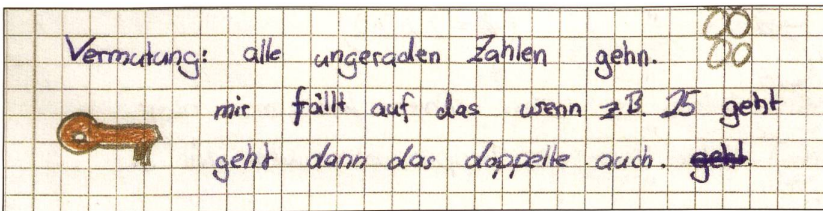 Vermutung: alle ungeraden Zahlen gehn.
mir fällt auf das wenn z.B. 25 geht
geht dann das doppelte auch. geht